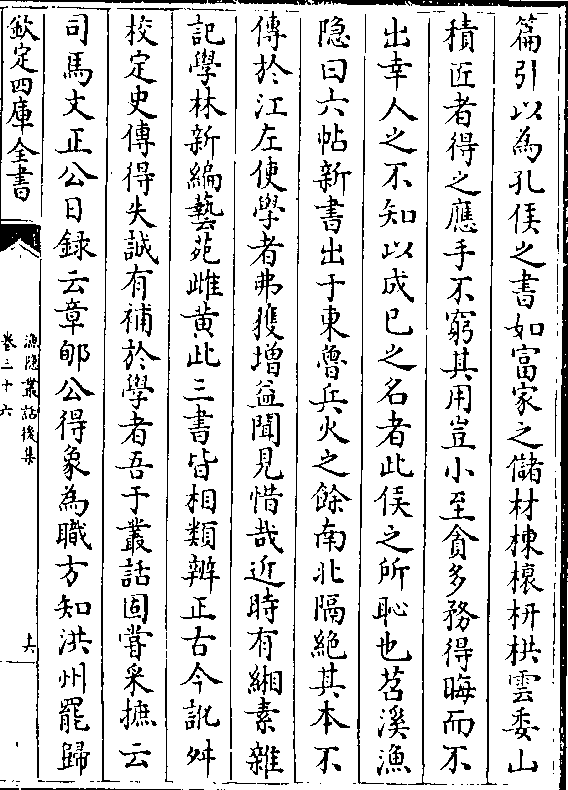 篇引以為孔侯之書如富家之儲材棟榱枅栱雲委山
積匠者得之應手不窮其用豈小至貪多務得晦而不
出幸人之不知以成已之名者此侯之所恥也苕溪漁
隐曰六帖新書出于東魯兵火之餘南北隔絶其本不
傳於江左使學者弗獲增益聞見惜哉近時有緗素雜
記學林新編藝苑雌黄此三書皆相類辨正古今訛舛
校定史傳得失誠有補於學者吾于叢話固嘗采摭云
司馬文正公日録云章郇公得象為職方知洪州罷歸
欽定四庫全書
漁隐叢話後集
卷三十六
十六